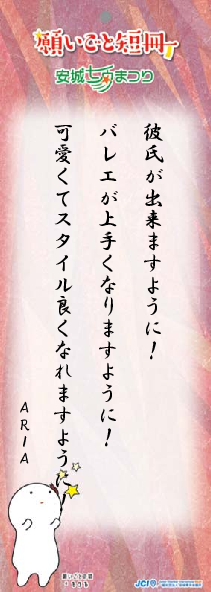 願いごと短冊
安城七夕まつり
彼氏が出来ますように！
バレエが上手くなりますように！
可愛くてスタイル良くなれますよう
ARIA
願いごと計画
きさら
JCI